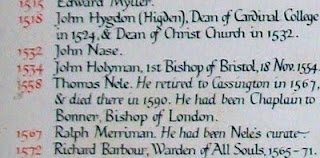 1515 Edward Mytter.
1518 John Hygdon (Higden), Dean of Cardinal College
in 1524, & Dean of Christ Church in 1532.
1532 John Nase.
1534 John Holyman, 1st Bishop of Bristol, 18 Nov. 1554.
1558 Thomas Nele. He retired to Cassington in 1567,
& died there in 1590. He had been Chaplain to
Bonner, Bishop of London.
1567 Ralph Merriman. He had been Nele's curate.
1572 Richard Barbour, Warden of All Souls, 1565-71.